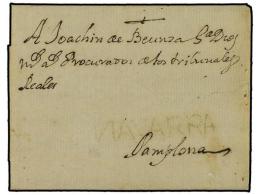 A Joachin de Beunza Gᵉ Dios
mˢ aˢ Procurador de los tribunales
Reales
Pamplona